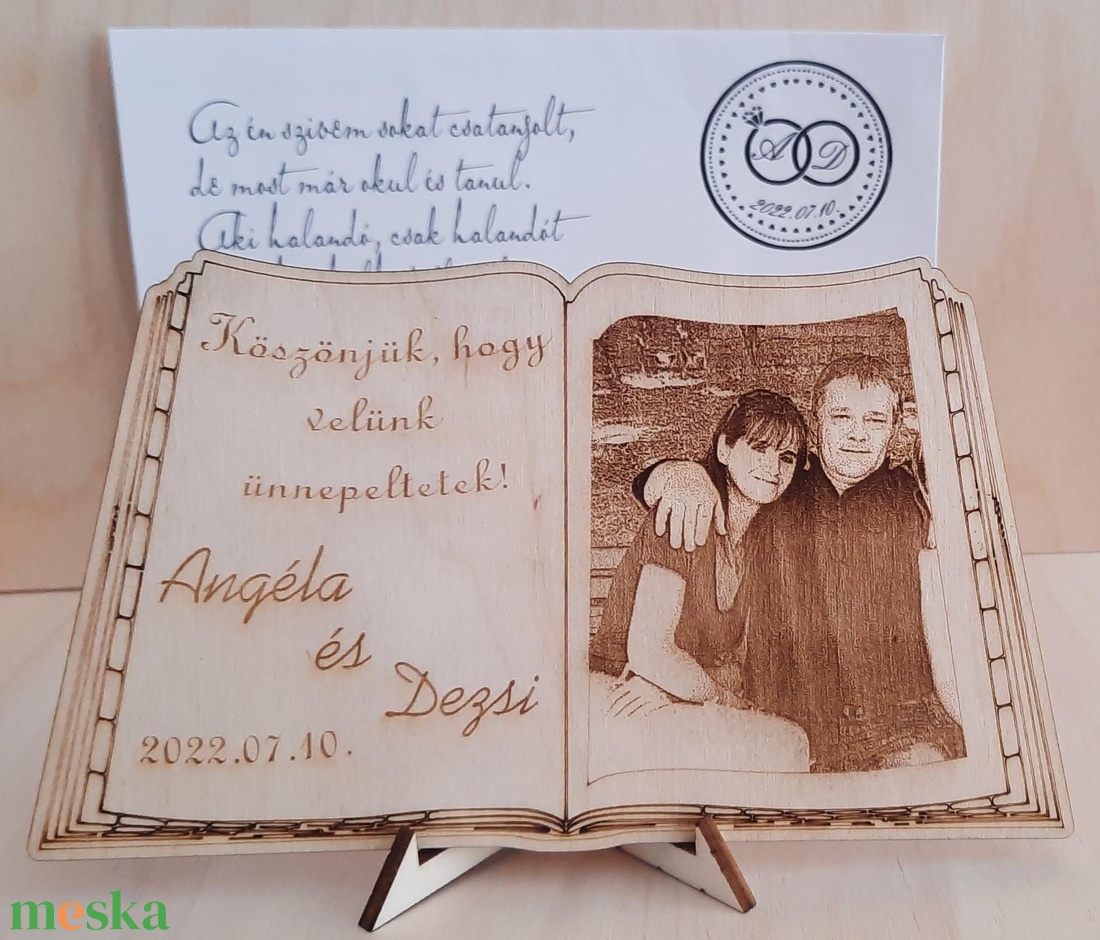 Az én szivem sokat csatangolt,
de most már okul és tanul.
Aki halandó, csak halandót
A D
2022.07.10.
Köszönjük, hogy
velünk
ünnepeltetek!
Angéla
és
Dezsi
2022.07.10.
meska